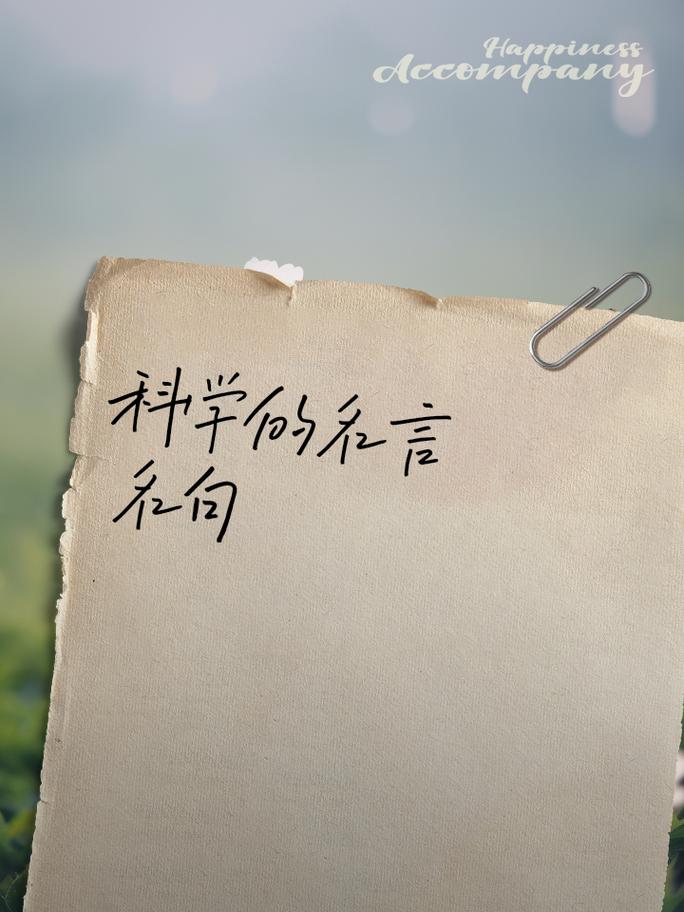 Happiness
Accompany
科学的名言
名句